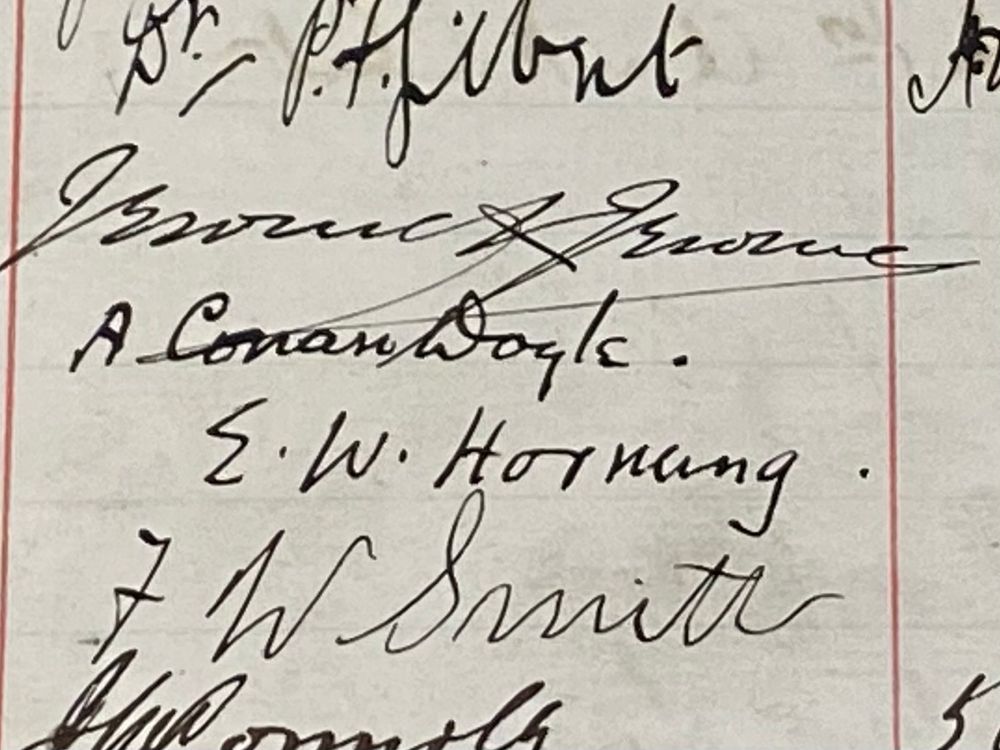 Dr. P. F. Gilbert
Jerome K Jerome
A Conan Doyle.
E. W. Hornung.
F W Smith
Connolly